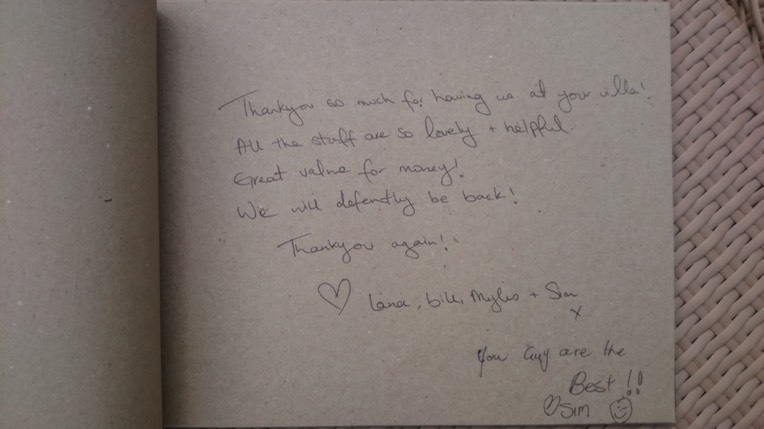 Thankyou so much for having us at your villa!
All the staff are so lovely + helpful.
Great value for money!
We will defently be back!
Thankyou again!
♡ Lana, Myles + Sim
x
You Guy are the
Best!!
♡ Sim ☺